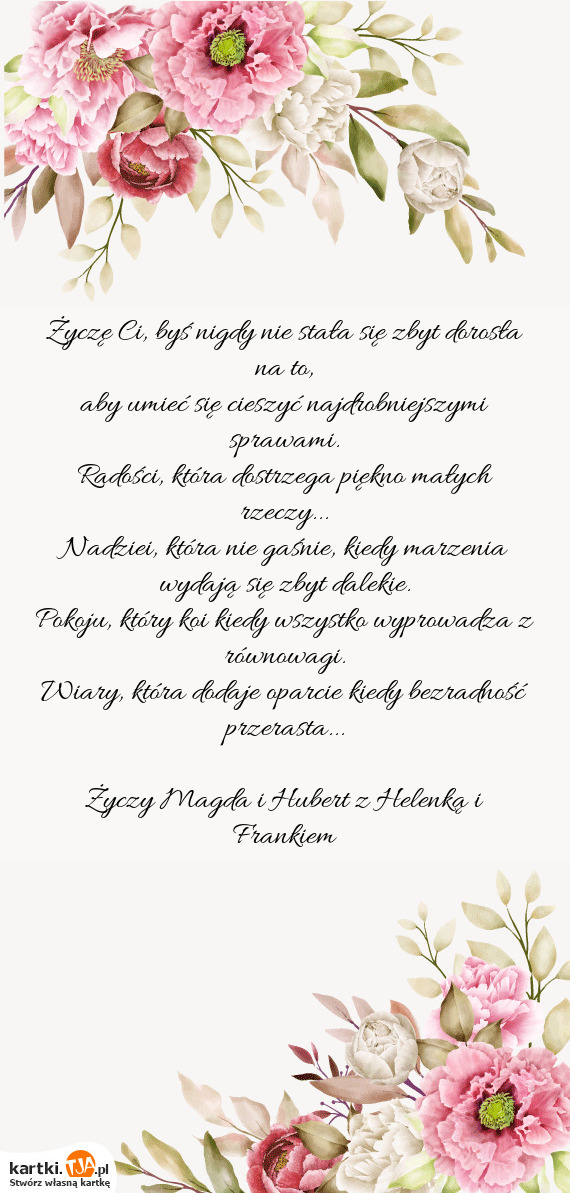 Życzę Ci, byś nigdy nie stała się zbyt dorosła
na to,
aby umieć się cieszyć najdrobniejszymi
sprawami.
Radości, która dostrzega piękno małych
rzeczy...
Nadziei, która nie gaśnie, kiedy marzenia
wydają się zbyt dalekie.
Pokoju, który koi kiedy wszystko wyprowadza z
równowagi.
Wiary, która dodaje oparcie kiedy bezradność
przerasta...
Życzy Magda i Hubert z Helenką i
Frankiem
kartki.TJA.pl
Stwórz własną kartkę